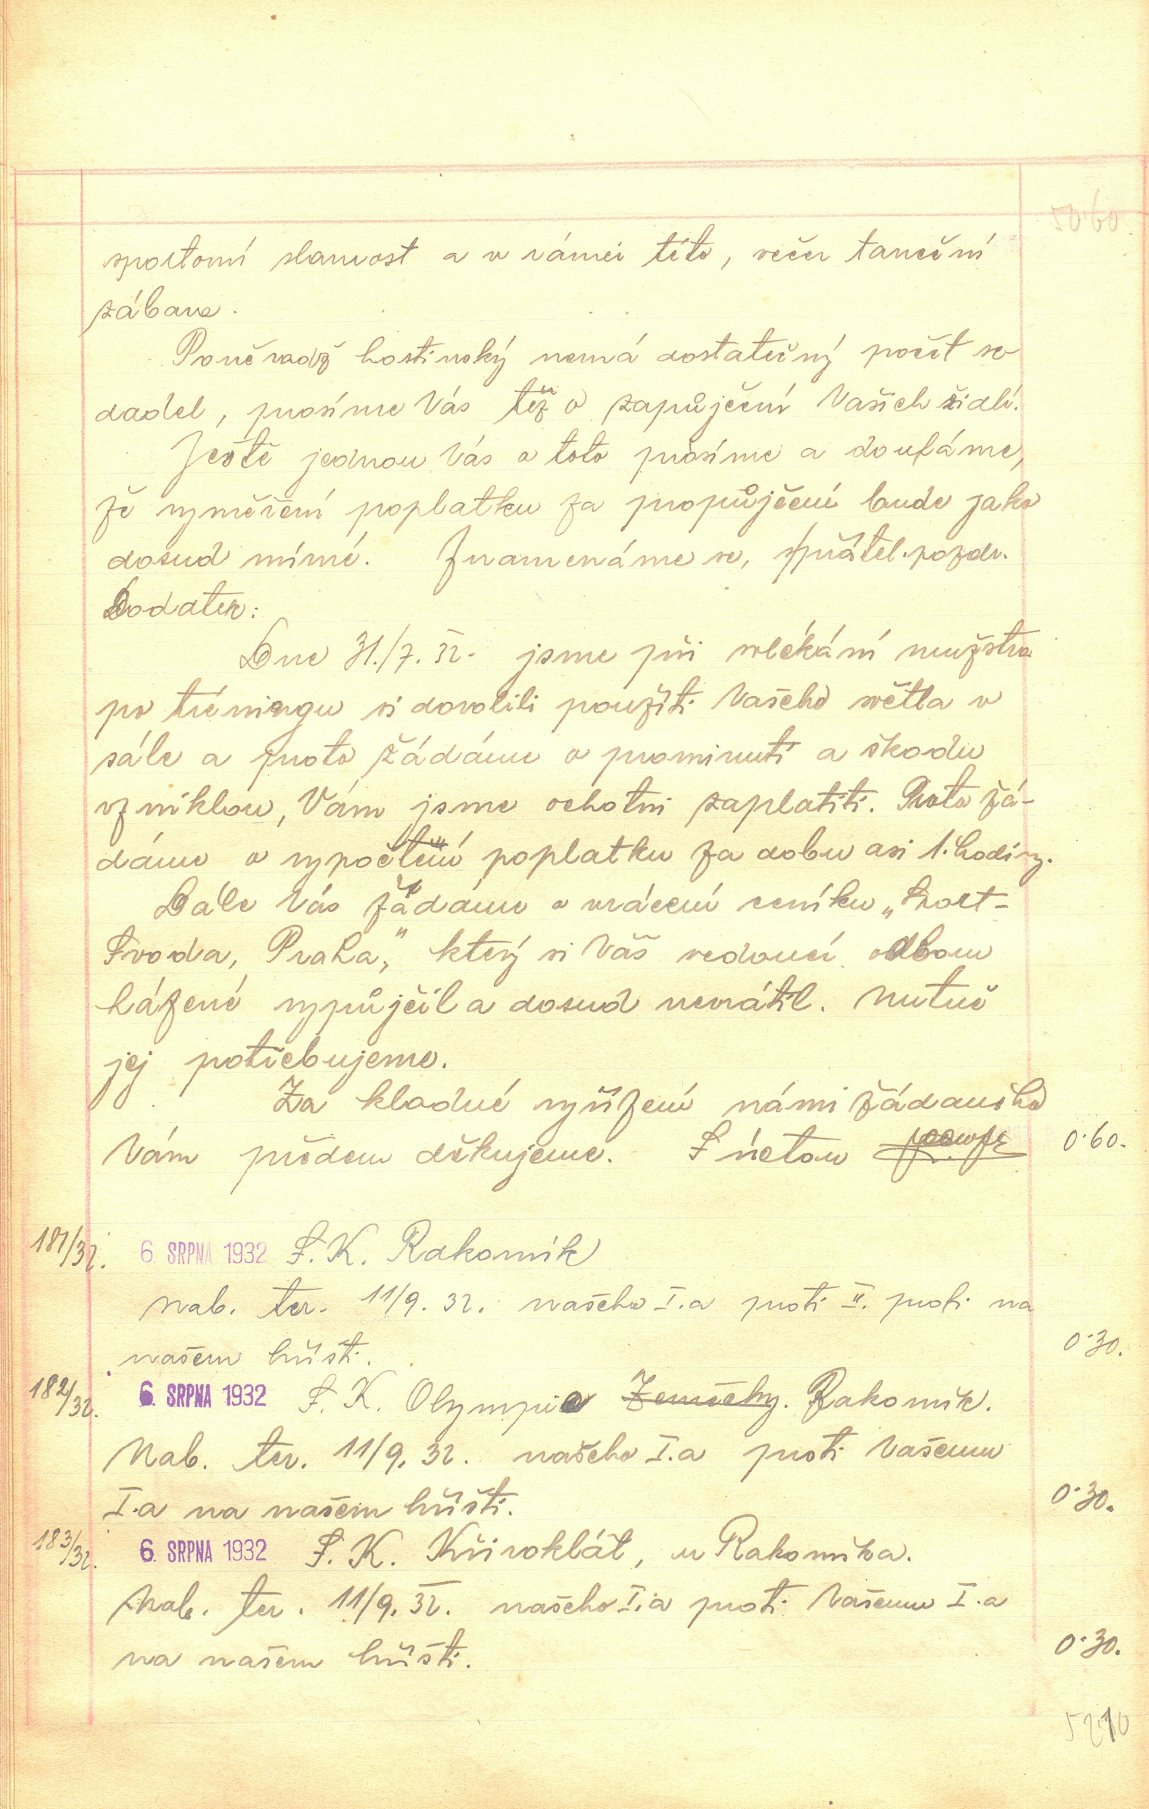 50·60.
sportovní slavnost a v rámci této, večer taneční
zábava.
Poněvadž hostinský nemá dostatečný počet se
dadel, prosíme Vás též o zapůjčení Vašich židlí.
Ještě jednou Vás o toto prosíme a doufáme,
že vyměření poplatku za propůjčení bude jako
dosud mírné. Znamenáme se, spřátel. pozdr.
Dodatek:
Dne 31./7. 32. jsme při svlékání mužstva
po tréningu si dovolili použíti Vašeho světla v
sále a proto žádáme o prominutí a škodu
vzniklou, Vám jsme ochotni zaplatiti. Proto žá-
dáme o vypočtení poplatku za dobu asi 1. hodiny.
Dále Vás žádáme o vrácení ceníku „
Svoda, Praha", který si Váš vedoucí odboru
házené vypůjčil a dosud nevrátil. Nutně
jej potřebujeme.
Za kladné vyřízení námi žádaného
Vám předem děkujeme. S úctou 0·60.
181/32. 6. SRPNA 1932 S. K. Rakovník
Nab. ter. 11/9. 32. našeho I.a proti II. proti na
našem hřišti. 0·30.
182/32. 6. SRPNA 1932 S. K. Olympia Zeměchy. Rakovník.
Nab. ter. 11/9. 32. našeho I.a proti Vašemu
I.a na našem hřišti. 0·30.
183/32. 6. SRPNA 1932 S. K. Křivoklát, u Rakovníka.
Nab. ter. 11/9. 32. našeho I.a proti Vašemu I.a
na našem hřišti. 0·30.
52·10